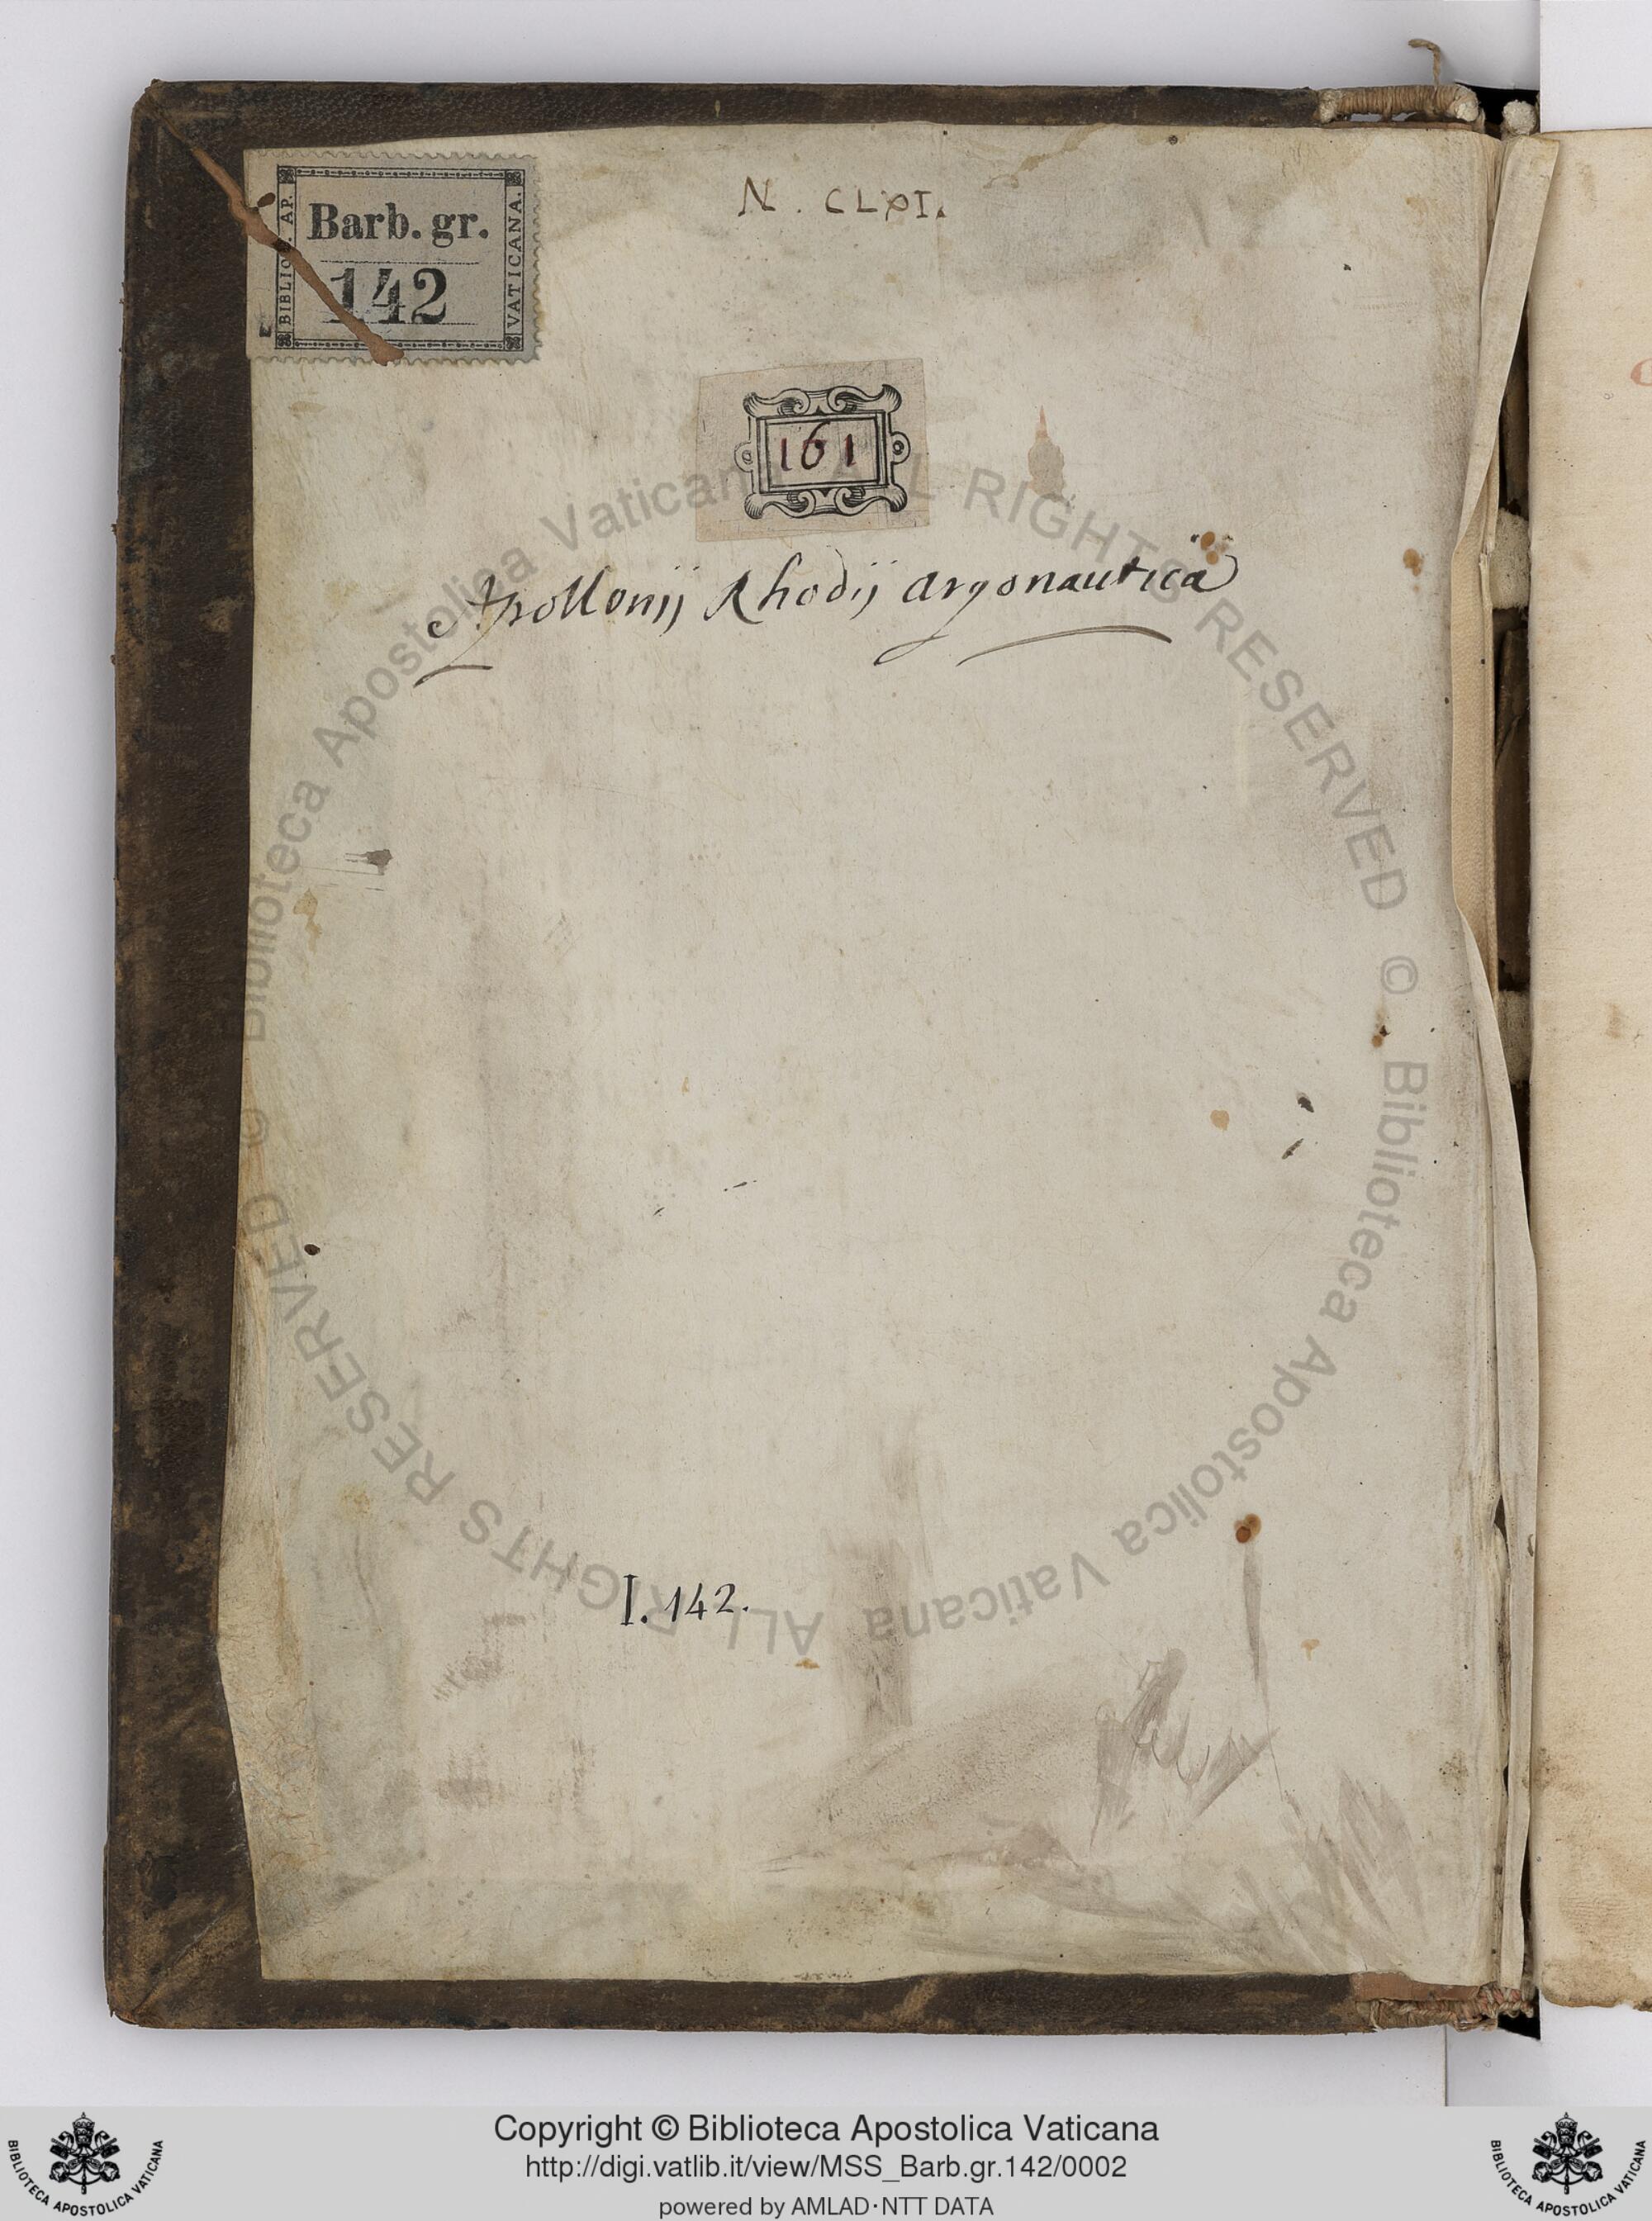 BIBLIO. AP. VATICANA.
Barb. gr.
142
N. CLXI.
161
Apollonij Rhodij Argonautica
I. 142.
© Biblioteca Apostolica Vaticana ALL RIGHTS RESERVED © Biblioteca Apostolica Vaticana ALL RIGHTS RESERVED
Copyright © Biblioteca Apostolica Vaticana
http://digi.vatlib.it/view/MSS_Barb.gr.142/0002
powered by AMLAD·NTT DATA
BIBLIOTECA APOSTOLICA VATICANA
BIBLIOTECA APOSTOLICA VATICANA